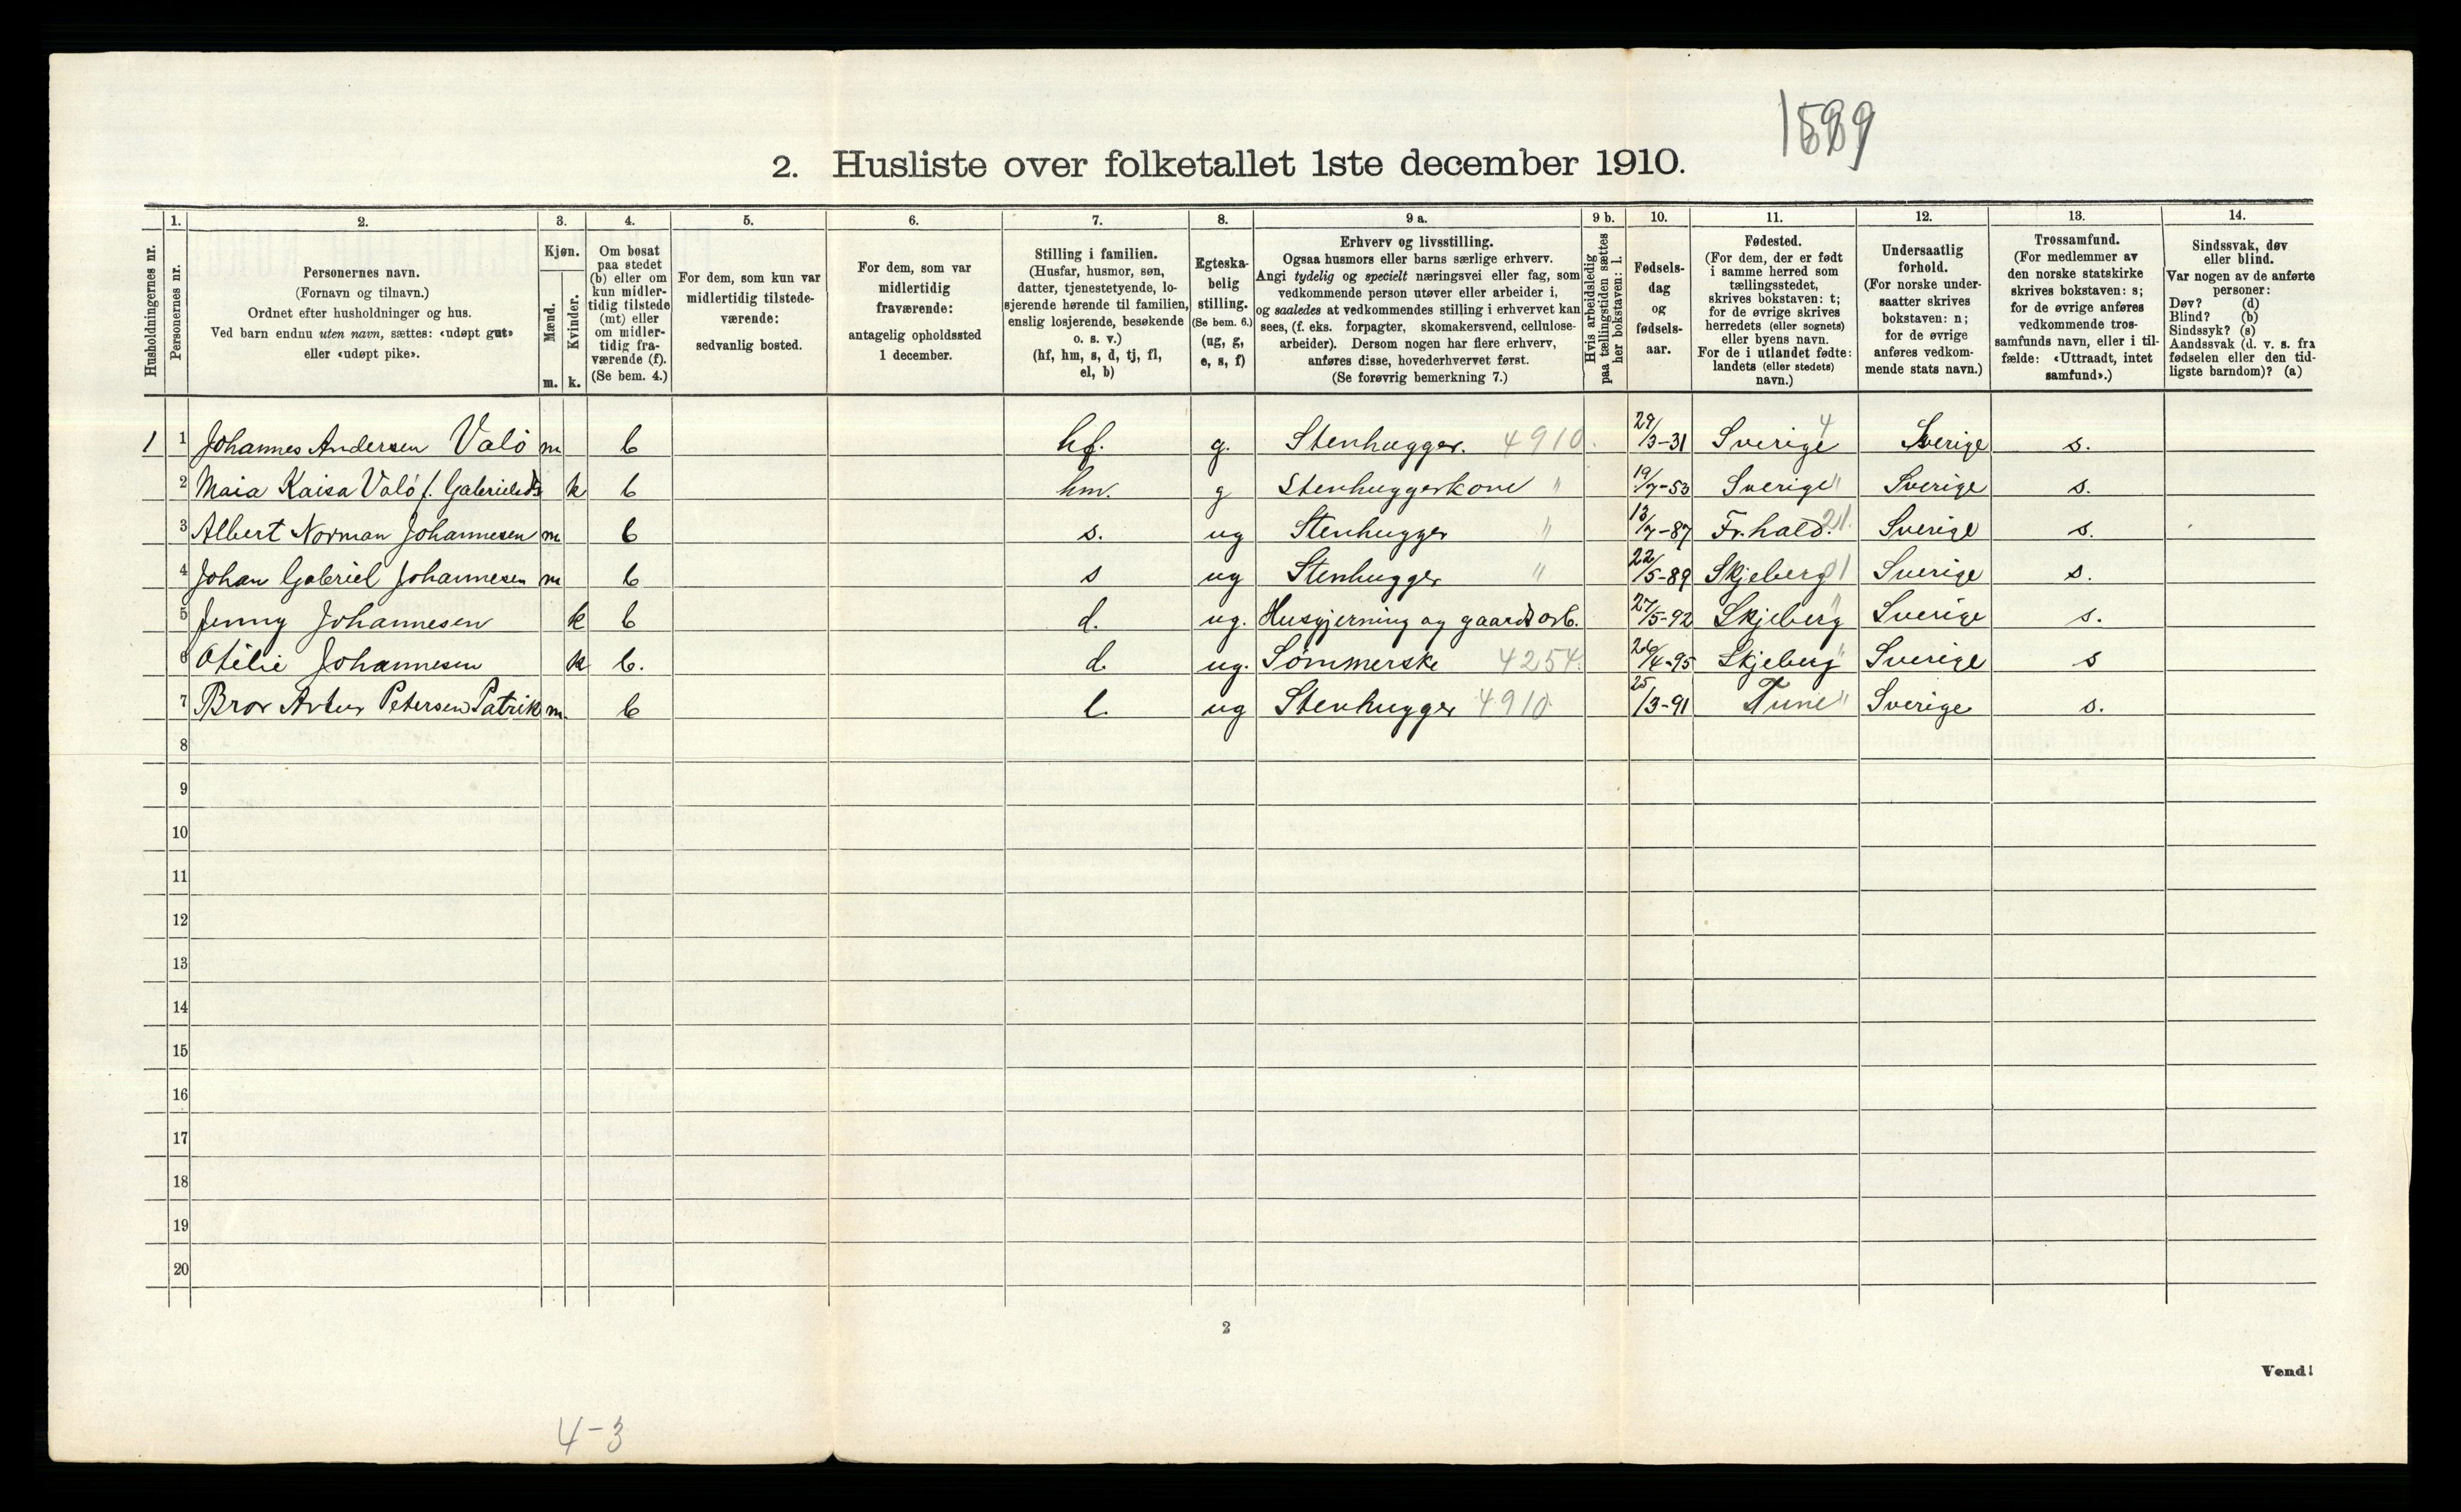 2. Husliste over folketallet 1ste december 1910.
1. 2. 3. 4. 5. 6. 7. 8. 9 a. 9 b. 10. 11. 12. 13. 14.
Husholdningernes nr.
Personernes nr.
Personernes navn.
(Fornavn og tilnavn.)
Ordnet efter husholdninger og hus.
Ved barn endnu uten navn, sættes: «udøpt gut»
eller «udøpt pike».
Kjøn.
Mænd.
Kvinder.
m. k.
Om bosat
paa stedet
(b) eller om
kun midler-
tidig tilstede
(mt) eller
om midler-
tidig fra-
værende (f).
(Se bem. 4.)
For dem, som kun var
midlertidig tilstede-
værende:
sedvanlig bosted.
For dem, som var
midlertidig
fraværende:
antagelig opholdssted
1 december.
Stilling i familien.
(Husfar, husmor, søn,
datter, tjenestetyende, lo-
sjerende hørende til familien,
enslig losjerende, besøkende
o. s. v.)
(hf, hm, s, d, tj, fl,
el, b)
Egteska-
belig
stilling.
(Se bem. 6.)
(ug, g,
e, s, f)
Erhverv og livsstilling.
Ogsaa husmors eller barns særlige erhverv.
Angi tydelig og specielt næringsvei eller fag, som
vedkommende person utøver eller arbeider i,
og saaledes at vedkommendes stilling i erhvervet kan
sees, (f. eks. forpagter, skomakersvend, cellulose-
arbeider). Dersom nogen har flere erhverv,
anføres disse, hovederhvervet først.
(Se forøvrig bemerkning 7.)
Hvis arbeidsledig
paa tællingstiden sættes
her bokstaven: l.
Fødsels-
dag
og
fødsels-
aar.
Fødested.
(For dem, der er født
i samme herred som
tællingsstedet,
skrives bokstaven: t;
for de øvrige skrives
herredets (eller sognets)
eller byens navn.
For de i utlandet fødte:
landets (eller stedets)
navn.)
Undersaatlig
forhold.
(For norske under-
saatter skrives
bokstaven: n;
for de øvrige
anføres vedkom-
mende stats navn.)
Trossamfund.
(For medlemmer av
den norske statskirke
skrives bokstaven: s;
for de øvrige anføres
vedkommende tros-
samfunds navn, eller i til-
fælde: «Uttraadt, intet
samfund».)
Sindssvak, døv
eller blind.
Var nogen av de anførte
personer:
Døv? (d)
Blind? (b)
Sindssyk? (s)
Aandssvak (d. v. s. fra
fødselen eller den tid-
ligste barndom)? (a)
1 1 Johannes Andersen Valö m b hf. g. Stenhugger. 4910. 29/3-31 Sverige 4 Sverige s.
2 Maia Kaisa Valö f. Gabrielsd k b hm. g Stenhuggerkone " 19/7-53 Sverige " Sverige s.
3 Albert Norman Johannesen m b s. ug Stenhugger " 13/7-87 Fr.hald. 21. Sverige s.
4 Johan Gabriel Johannesen m b s ug Stenhugger " 22/5-89 Skjeberg 01 Sverige s.
5 Jenny Johannesen k b d. ug. Husgjerning og gaardsarb. 27/5-92 Skjeberg " Sverige s.
6 Otilie Johannesen k b. d. ug. Sömmerske 4254. 26/4-95 Skjeberg " Sverige s
7 Bror Artur Petersen Patrik m. b l. ug Stenhugger 4910. 25/3-91 Tune " Sverige s.
8
9
10
11
12
13
14
15
16
17
18
19
20
2
Vend!
4-3